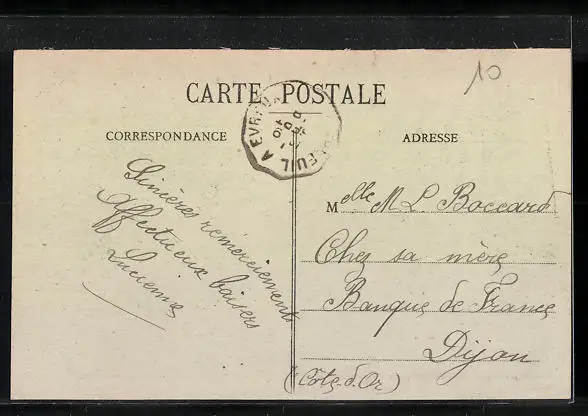 10
CARTE POSTALE
CORRESPONDANCE
ADRESSE
EUIL A EVREUX
Sincères remerciements
Affectueux baisers
Lucienne
Melle M. L. Boccard
Chez sa mère
Banque de France
Dijon
(Côte-d'Or)